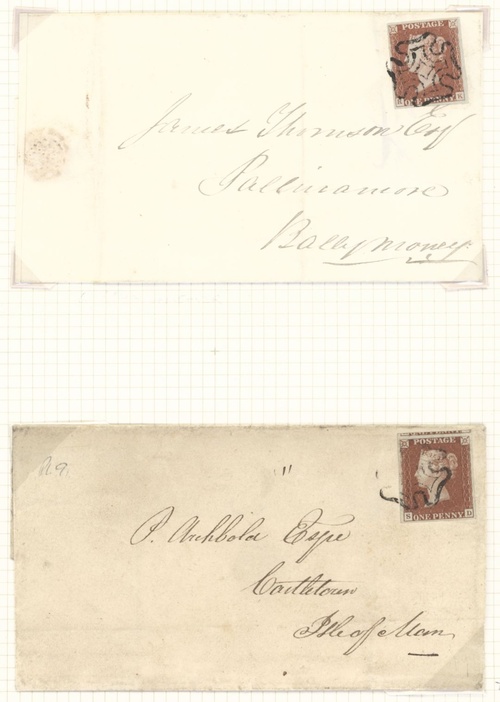 POSTAGE
ONE PENNY K
James Thomson Esq
Ballinamore
Ballymoney
POSTAGE
S ONE PENNY D
Pl. 9.
P. Archbold Esqre
Castletown
Isle of Man